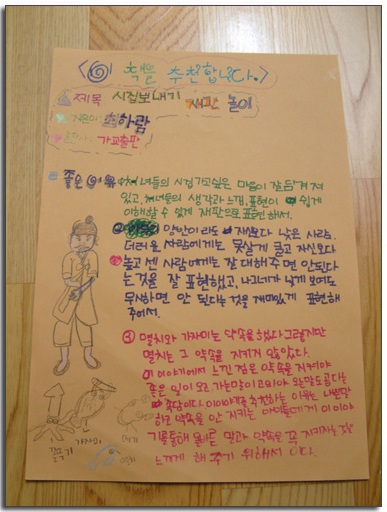 책을 추천합니다.
제목 시집보내기 재판 놀이
지은이 하람
출판사 가교출판
좋은 이유 처녀들의 시집가고싶은 마음이 잘 담겨져
있고, 처녀들의 생각과 느낌, 표현이 쉽게
이해할 수 있게 재판으로 표현해서.
양반이라도 자신보다 낮은 사람,
더러운 사람에게는 못살게 굴고 자신보다
높고 센 사람에게는 잘 대해주면 안된다
는것을 잘 표현했고, 나그네가 낮게 보여도
무시하면 안 된다는 것을 재미있게 표현해
주어서.
③ 멸치와 가자미는 약속을 했다 그렇지만
멸치는 그 약속을 지키지 않았았다.
이 이야기에서 느낀 점은 약속을 지켜야
좋은 일이 오고 가는말이 고와야 오는말도 곱다는
속담이다. 이이야기를 추천하는 이유는 나쁜말
하고 약속을 안 지키는 아이들에게 이 이야
기를통해 올바른 말과 약속은 꼭 지키자는 것
느끼게 해 주기 위해서 이다.
가자미
꼴뚜기
메기
멸치